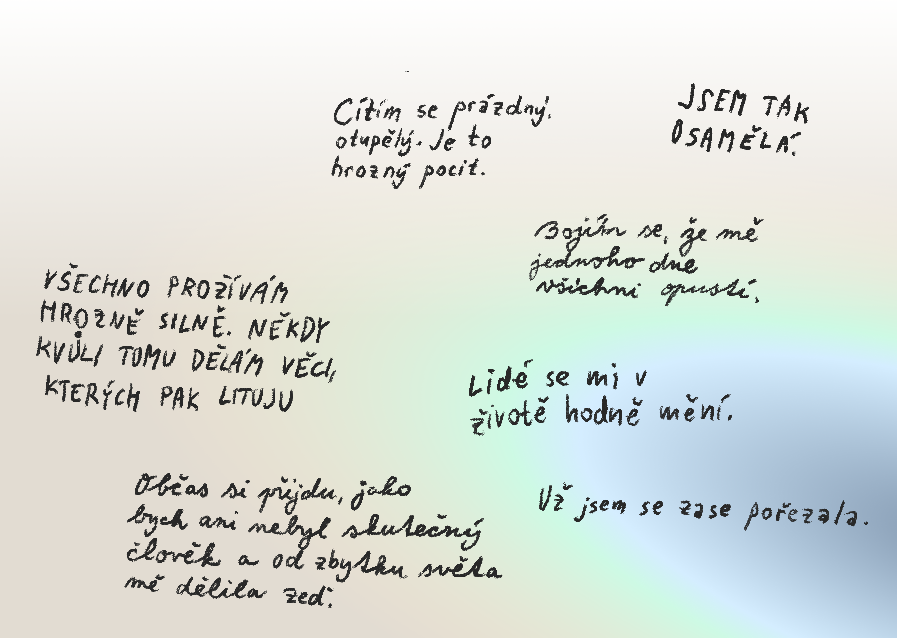 Cítím se prázdný,
otupělý. Je to
hrozný pocit.
JSEM TAK
OSAMĚLÁ.
Bojím se, že mě
jednoho dne
všichni opustí.
VŠECHNO PROŽÍVÁM
HROZNĚ SILNĚ. NĚKDY
KVŮLI TOMU DĚLÁM VĚCI,
KTERÝCH PAK LITUJU
Lidé se mi v
životě hodně mění.
Občas si přijdu, jako
bych ani nebyl skutečný
člověk a od zbytku světa
mě dělila zeď.
Už jsem se zase pořezala.